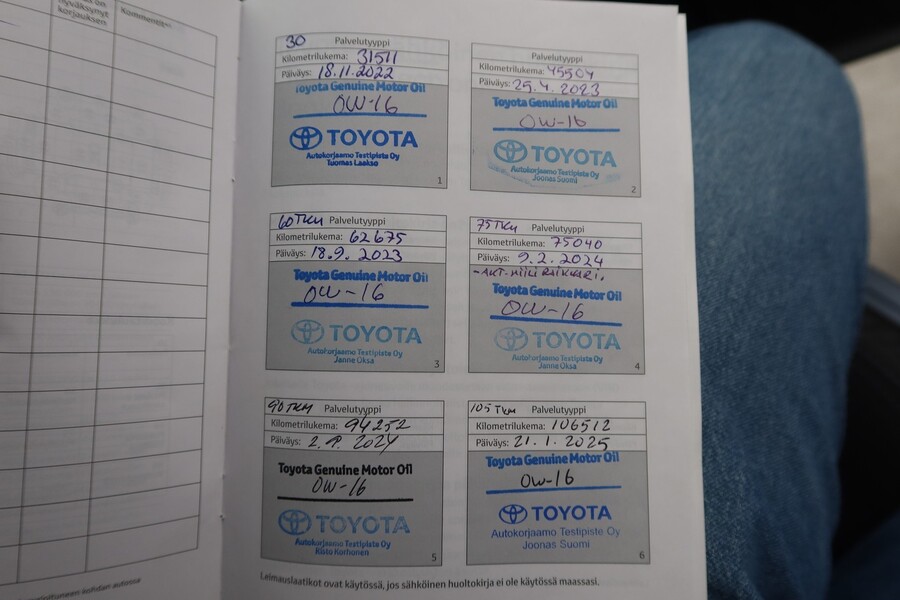 korjauksen
30 Palvelutyyppi
Kilometrilukema: 31511
Päiväys: 18.11.2022
Toyota Genuine Motor Oil
0W-16
TOYOTA
Autokorjaamo Testipiste Oy
Tuomas Laakso
1
Palvelutyyppi
Kilometrilukema: 45504
Päiväys: 25.4.2023
Toyota Genuine Motor Oil
0W-16
TOYOTA
Autokorjaamo Testipiste Oy
Joonas Suomi
2
60TKM Palvelutyyppi
Kilometrilukema: 62675
Päiväys: 18.9.2023
Toyota Genuine Motor Oil
0W-16
TOYOTA
Autokorjaamo Testipiste Oy
Janne Oksa
3
75TKM Palvelutyyppi
Kilometrilukema: 75040
Päiväys: 9.2.2024
Toyota Genuine Motor Oil
0W-16
TOYOTA
Autokorjaamo Testipiste Oy
Janne Oksa
4
90TKM Palvelutyyppi
Kilometrilukema: 94252
Päiväys:
Toyota Genuine Motor Oil
0W-16
TOYOTA
Autokorjaamo Testipiste Oy
Risto Korhonen
5
105TKM Palvelutyyppi
Kilometrilukema: 106512
Päiväys: 21.1.2025
Toyota Genuine Motor Oil
0W-16
TOYOTA
Autokorjaamo Testipiste Oy
Joonas Suomi
6
Leimauslaatikot ovat käytössä, jos sähköinen huoltokirja ei ole käytössä maassasi.